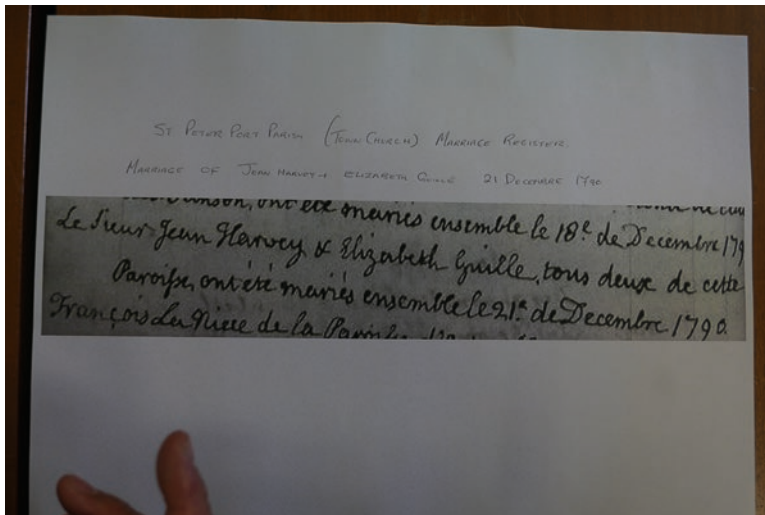 ST PETER PORT PARISH (TOWN CHURCH) MARRIAGE REGISTER.
MARRIAGE OF JEAN HARVEY + ELIZABETH GUILLE 21 DECEMBRE 1790
ont été mariés ensemble le 18.e de Decembre 179
Le Sieur Jean Harvey & Elizabeth Guille, tous deux de cette
Paroisse, ont été mariés ensemble le 21.e de Decembre 1790.
François de la Paroisse